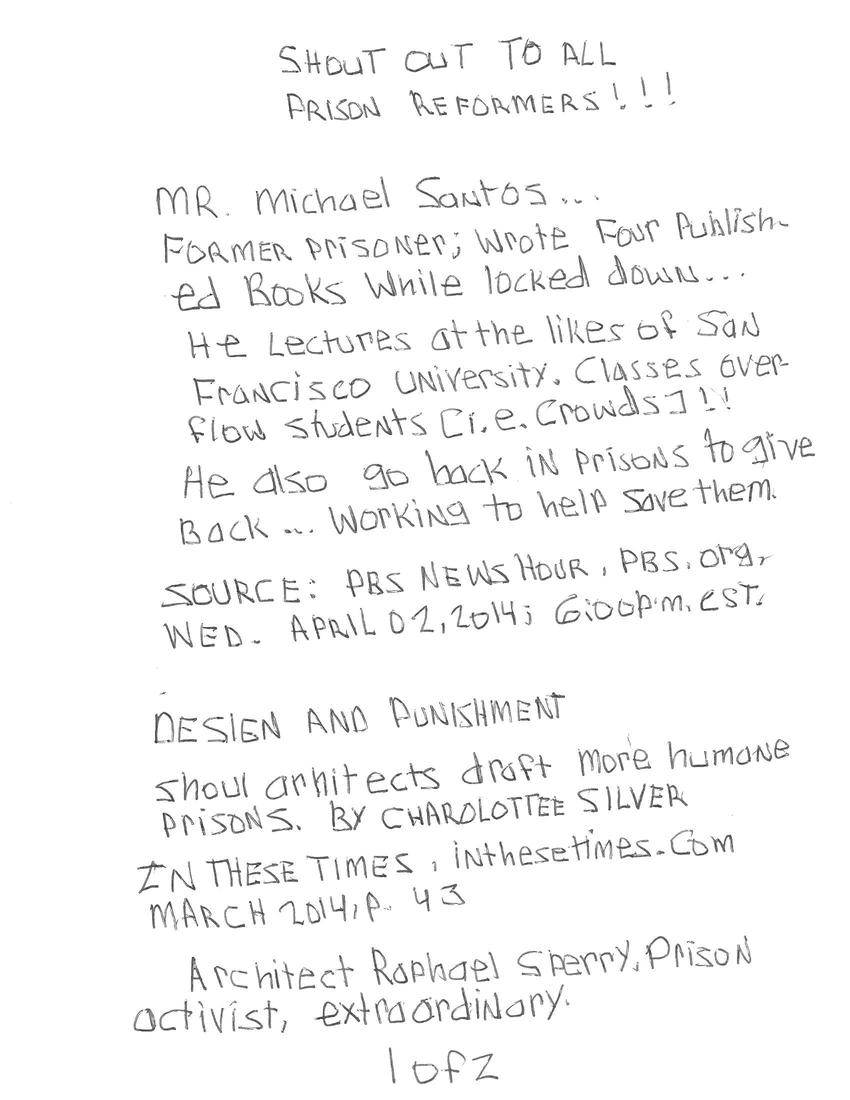 SHOUT OUT TO ALL
PRISON REFORMERS!!!
MR. Michael Santos...
FORMER prisoner; Wrote Four Publish-
ed Books While locked down...
He Lectures at the likes of San
Francisco UNiversity. Classes over-
flow students [i.e. Crowds]!!
He also go back in prisons to give
Back... Working to help save them.
SOURCE: PBS NEWS HOUR, PBS.org,
WED. APRIL 02, 2014; 6:00p.m. EST.
DESIGN AND PUNISHMENT
shoul arhitects draft more humane
prisons. BY CHAROLOTTEE SILVER
IN THESE TIMES, inthesetimes.com
MARCH 2014, p. 43
Architect Raphael Sperry, Prison
activist, extraordinary.
1 of 2